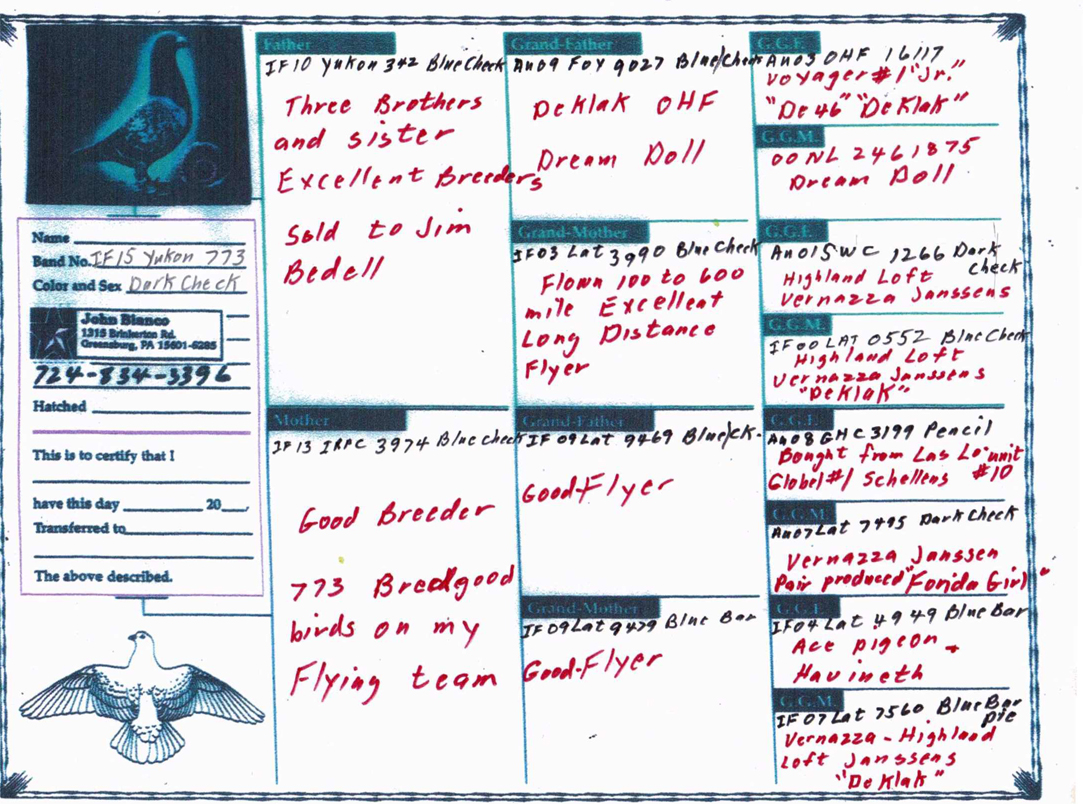 Name
Band No. IF15 Yukon 773
Color and Sex Dark Check
John Bianco
1315 Brinkerton Rd.
Greensburg, PA 15601-6285
724-834-3396
Hatched
This is to certify that I
have this day 20 .
Transferred to
The above described.
Father
IF10 Yukon 342 Blue Check
Three Brothers
and sister
Excellent Breeders
Sold to Jim
Bedell
Mother
IF 13 IRPC 3974 Blue check
Good Breeder
773 Bred good
birds on my
Flying team
Grand-Father
Au09 FOY 9027 Blue/Check
DeKlak OHF
Dream Doll
Grand-Mother
IF03 Lat 3990 Blue Check
Flown 100 to 600
mile Excellent
Long Distance
Flyer
Grand-Father
IF 09 Lat 9469 Blue/ck.
Good-Flyer
Grand-Mother
IF 09 Lat 9479 Blue Bar
Good-Flyer
G.G.F.
Au03 OHF 16117
Voyager #1 "Jr."
"De 46" "DeKlak"
G.G.M.
00 NL 2461875
Dream Doll
G.G.F.
Au01SWC 1266 Dark
check
Highland Loft
Vernazza Janssens
G.G.M.
IF 00 LAT 0552 Blue Check
Highland Loft
Vernazza Janssens
"DeKlak"
G.G.F.
Au08 GHC 3199 Pencil
Bought from Las Lo unit
Globel #1 Schellens #10
G.G.M.
Au07 Lat 7495 Dark Check
Vernazza Janssen
Pair produced "Forida Girl"
G.G.F.
IF04 Lat 4949 Blue Bar
Ace pigeon
Havineth
G.G.M.
IF 07 Lat 7560 Blue Bar
pie
Vernazza - Highland
Loft Janssens
"DeKlak"